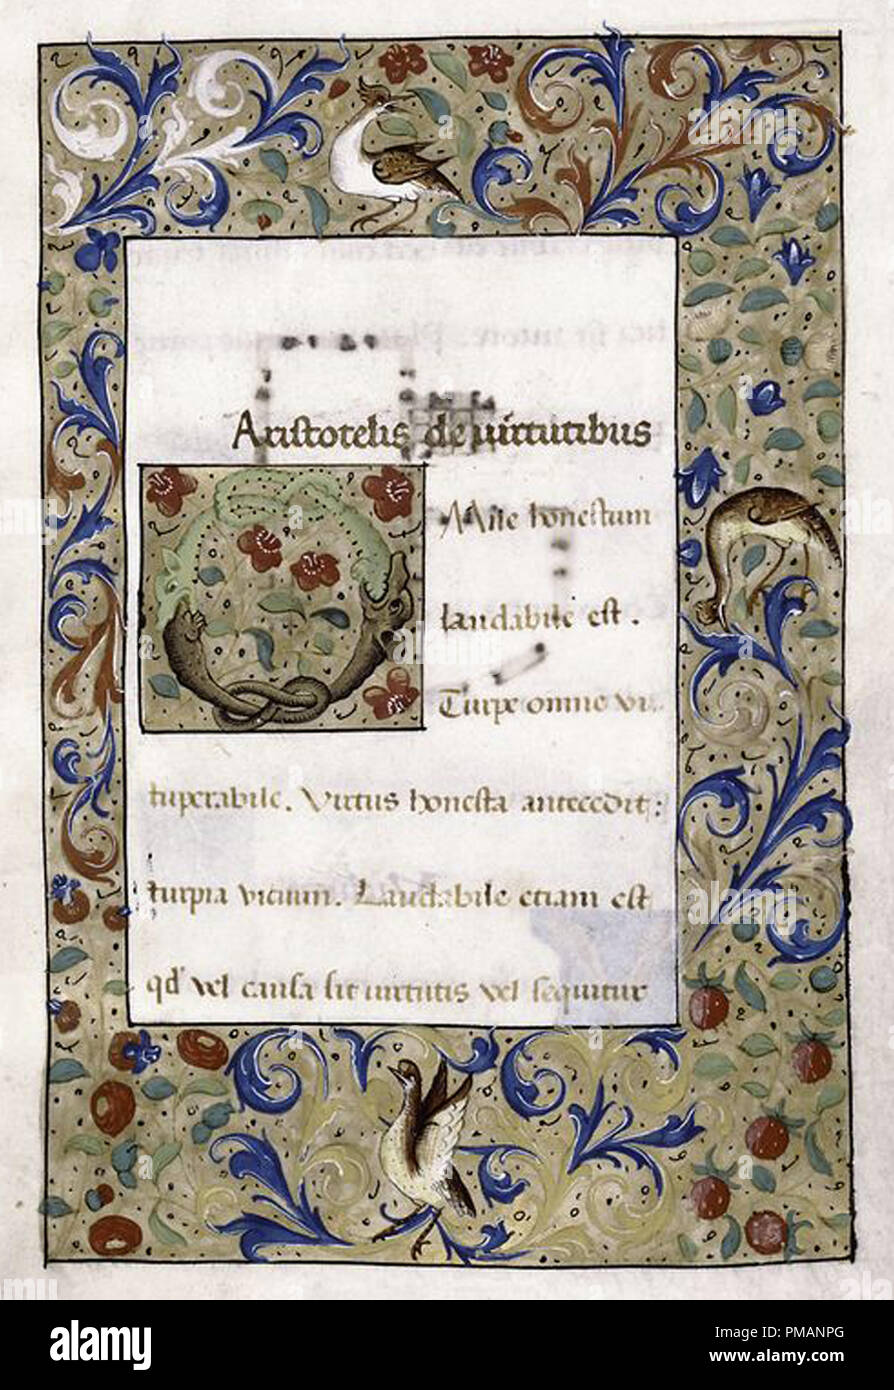 Aristotelis de virtutibus
Mne honestum
laudabile est.
Turpe omne vi
tuperabile. Virtus honesta antecedit:
turpia vicium. Laudabile etiam est
qd' vel causa sit virtutis vel sequitur
alamy
Image ID: PMANPG
www.alamy.com